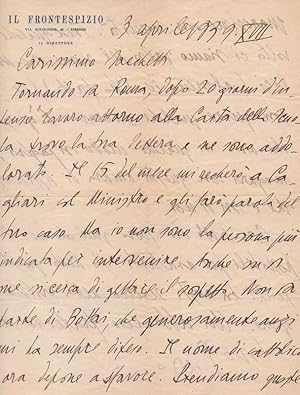 IL FRONTESPIZIO
VIA BOLOGNESE, 40 - FIRENZE
IL DIRETTORE
3 aprile 1939 XVII
Carissimo Sacchetti
Tornando a Roma, dopo 20 giorni d'in
tenso lavoro attorno alla Carta della Scuo
la, trovo la tua lettera e ne sono addo
lorato. Il 15 del mese mi recherò a Ca
gliari col Ministro e gli farò parola del
tuo caso. Ma io non sono la persona più
indicata per intervenire. Anche su di
me si cerca di gettare il sospetto. Non da
parte di Bottai, che generosamente anzi
mi ha sempre difeso. Il nome di cattolico
ora depone a sfavore. Attendiamo queste